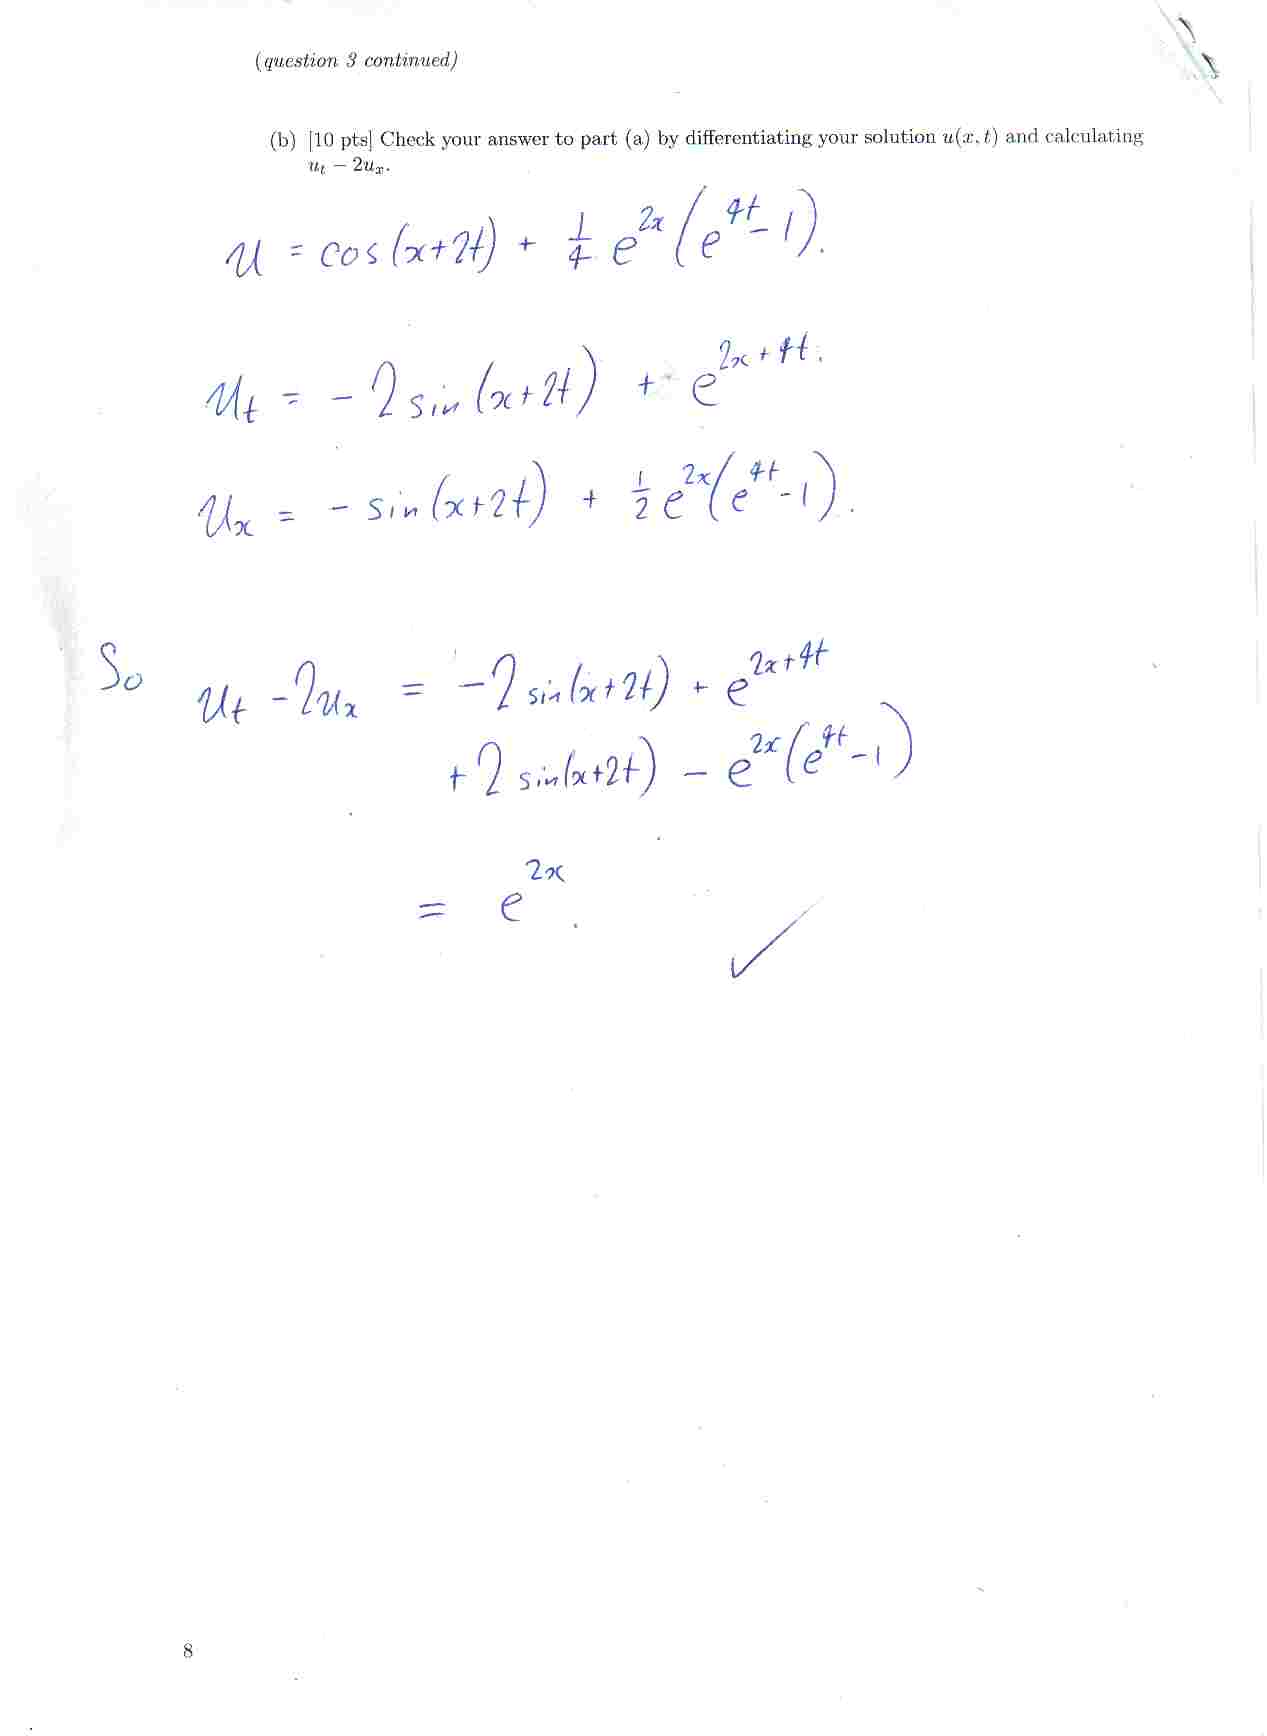 (question 3 continued)
(b) [10 pts] Check your answer to part (a) by differentiating your solution u(x, t) and calculating
u_t − 2u_x.
u = cos(x+2t) + 1/4 e^{2x} (e^{4t} - 1).
u_t = - 2 sin(x+2t) + e^{2x+4t}.
u_x = - sin(x+2t) + 1/2 e^{2x} (e^{4t} - 1).
So u_t - 2u_x = -2 sin(x+2t) + e^{2x+4t}
+ 2 sin(x+2t) - e^{2x} (e^{4t} - 1)
= e^{2x}. ✓
8